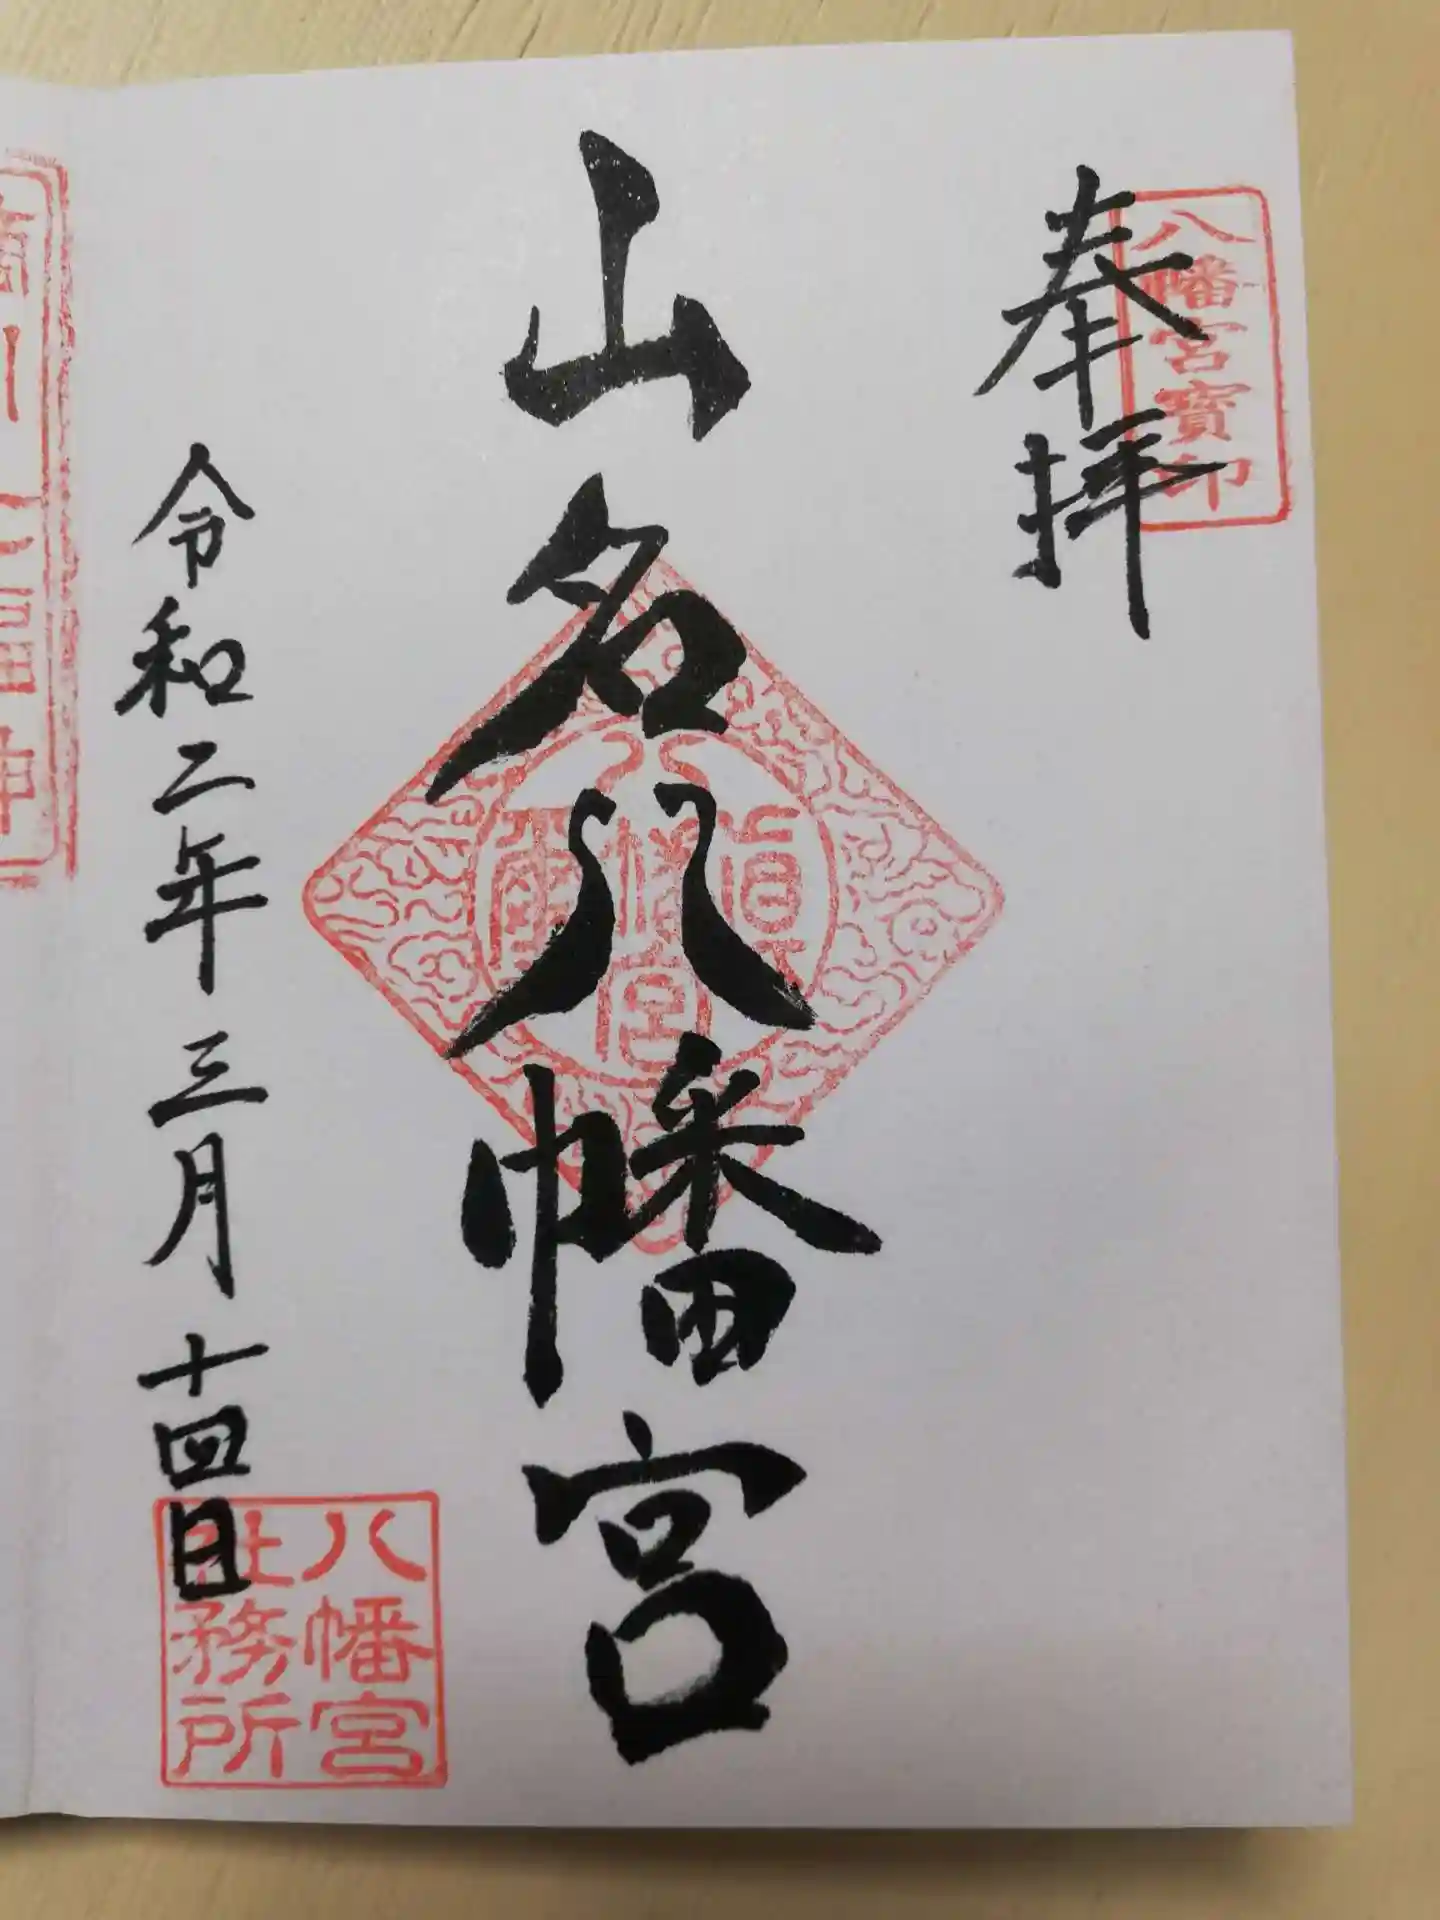 奉拝
八幡宮寶印
山名八幡宮
令和二年三月十四日
八幡宮
社務所